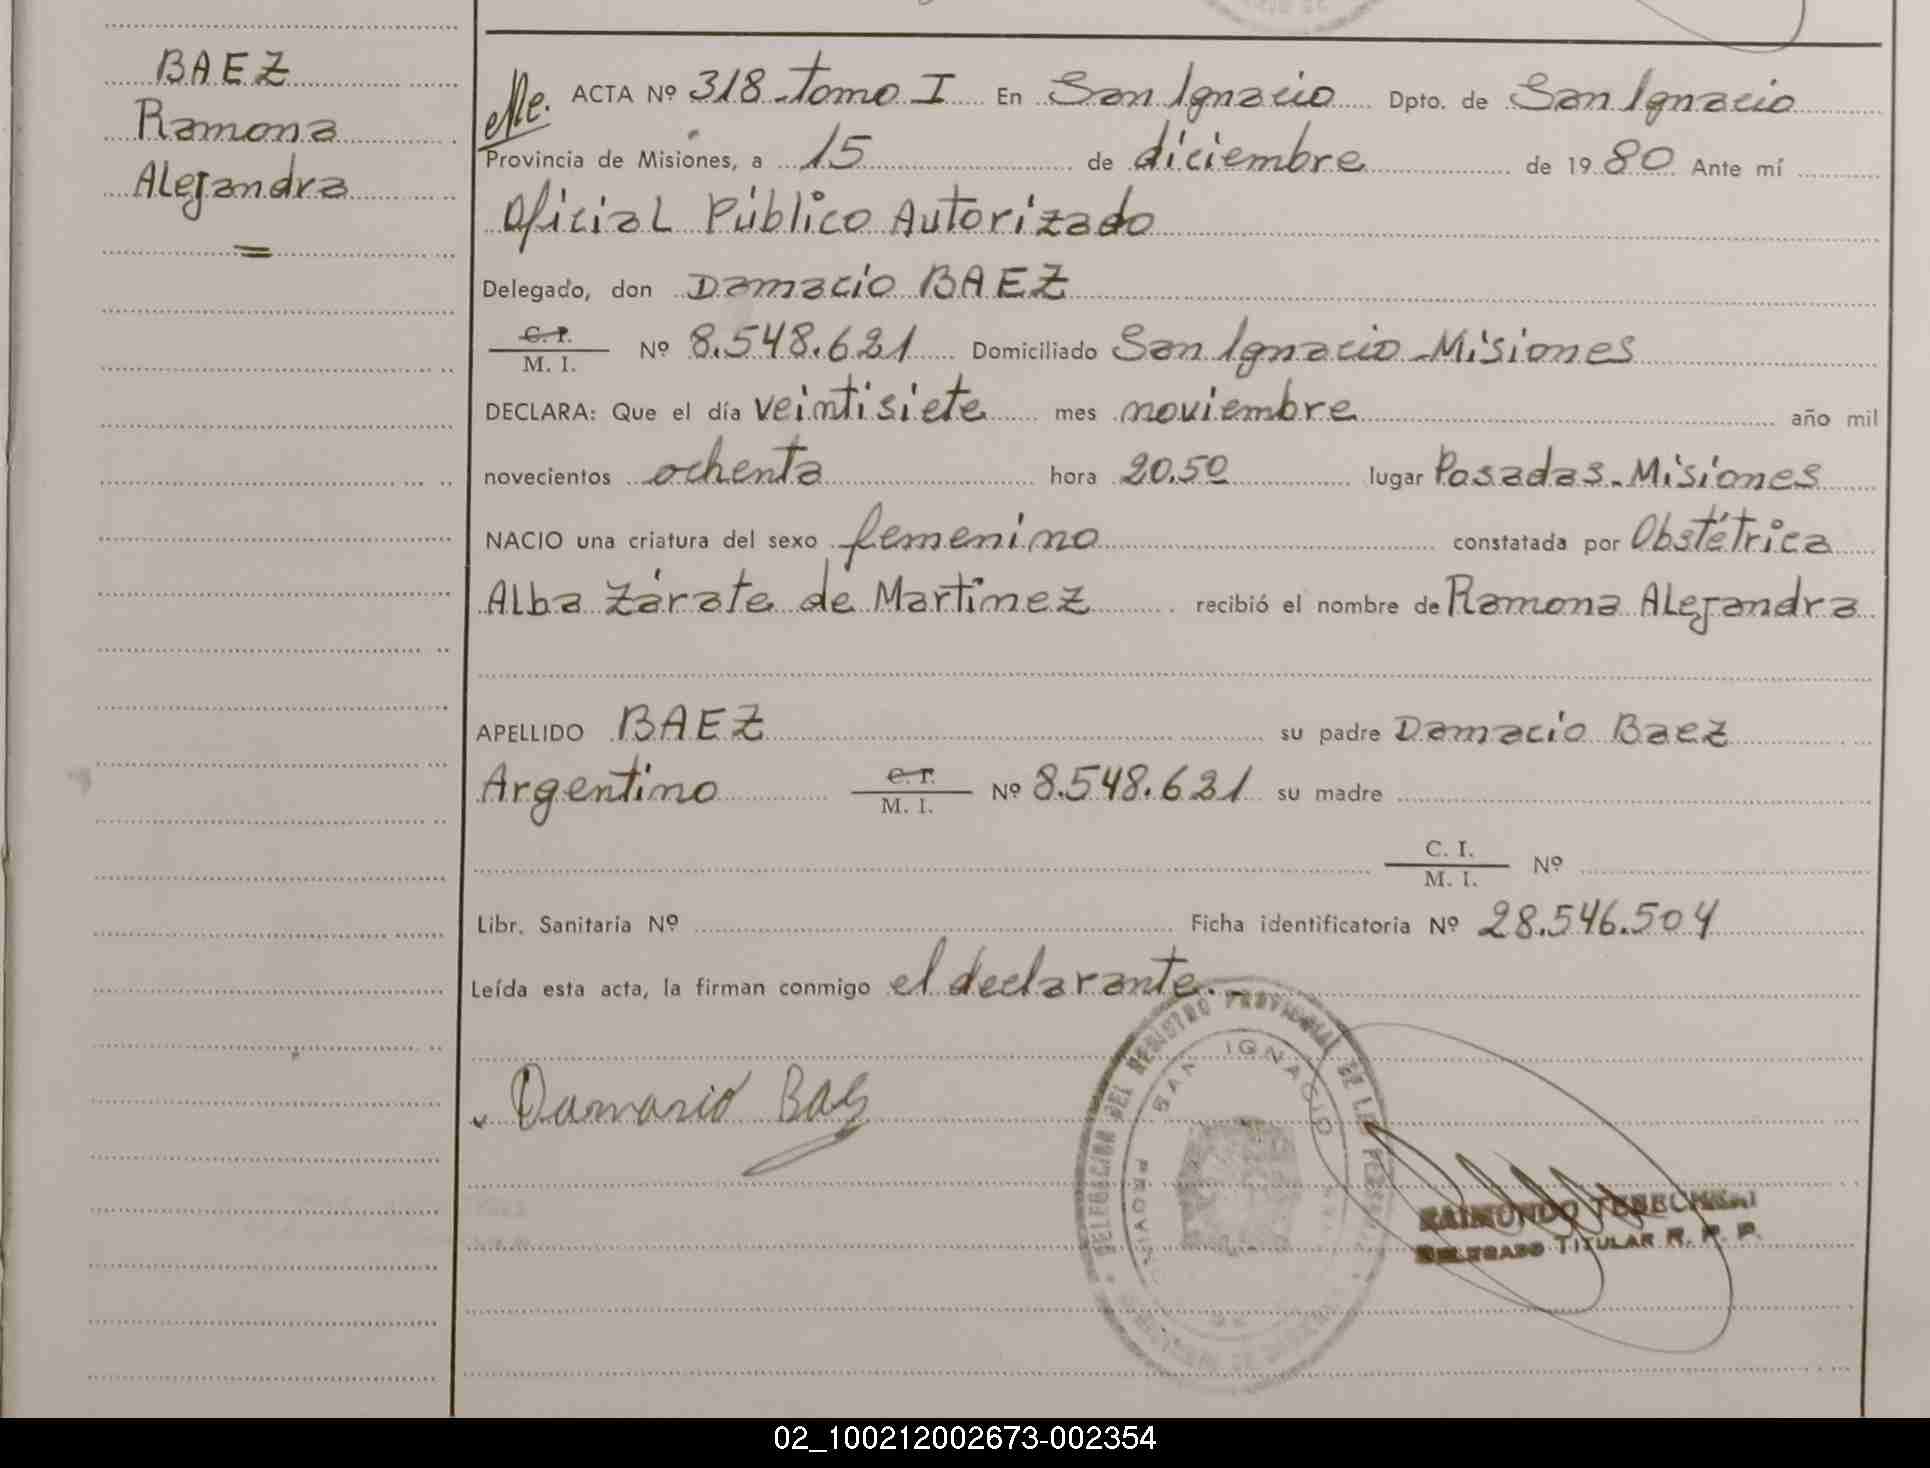 BAEZ
Ramona
Alejandra
Me. ACTA Nº 318 - Tomo I En San Ignacio Dpto. de San Ignacio
Provincia de Misiones, a 15 de diciembre de 1980 Ante mí
Oficial Público Autorizado
Delegado, don Damacio BAEZ
C. I.
M. I. Nº 8.548.621 Domiciliado San Ignacio - Misiones
DECLARA: Que el día veintisiete mes noviembre año mil
novecientos ochenta hora 20.50 lugar Posadas - Misiones
NACIO una criatura del sexo femenino constatada por Obstétrica
Alba Zárate de Martinez recibió el nombre de Ramona Alejandra
APELLIDO BAEZ su padre Damacio Baez
Argentino C. I. M. I. Nº 8.548.621 su madre
C. I.
M. I. Nº
Libr. Sanitaría Nº Ficha identificatoria Nº 28.546.504
Leída esta acta, la firman conmigo el declarante.-
DELEGACION DEL REGISTRO PROVINCIAL DE LAS PERSONAS
SAN IGNACIO
Damasio Baes
RAIMUNDO
DELEGADO TITULAR R. P. P.
02_100212002673-002354